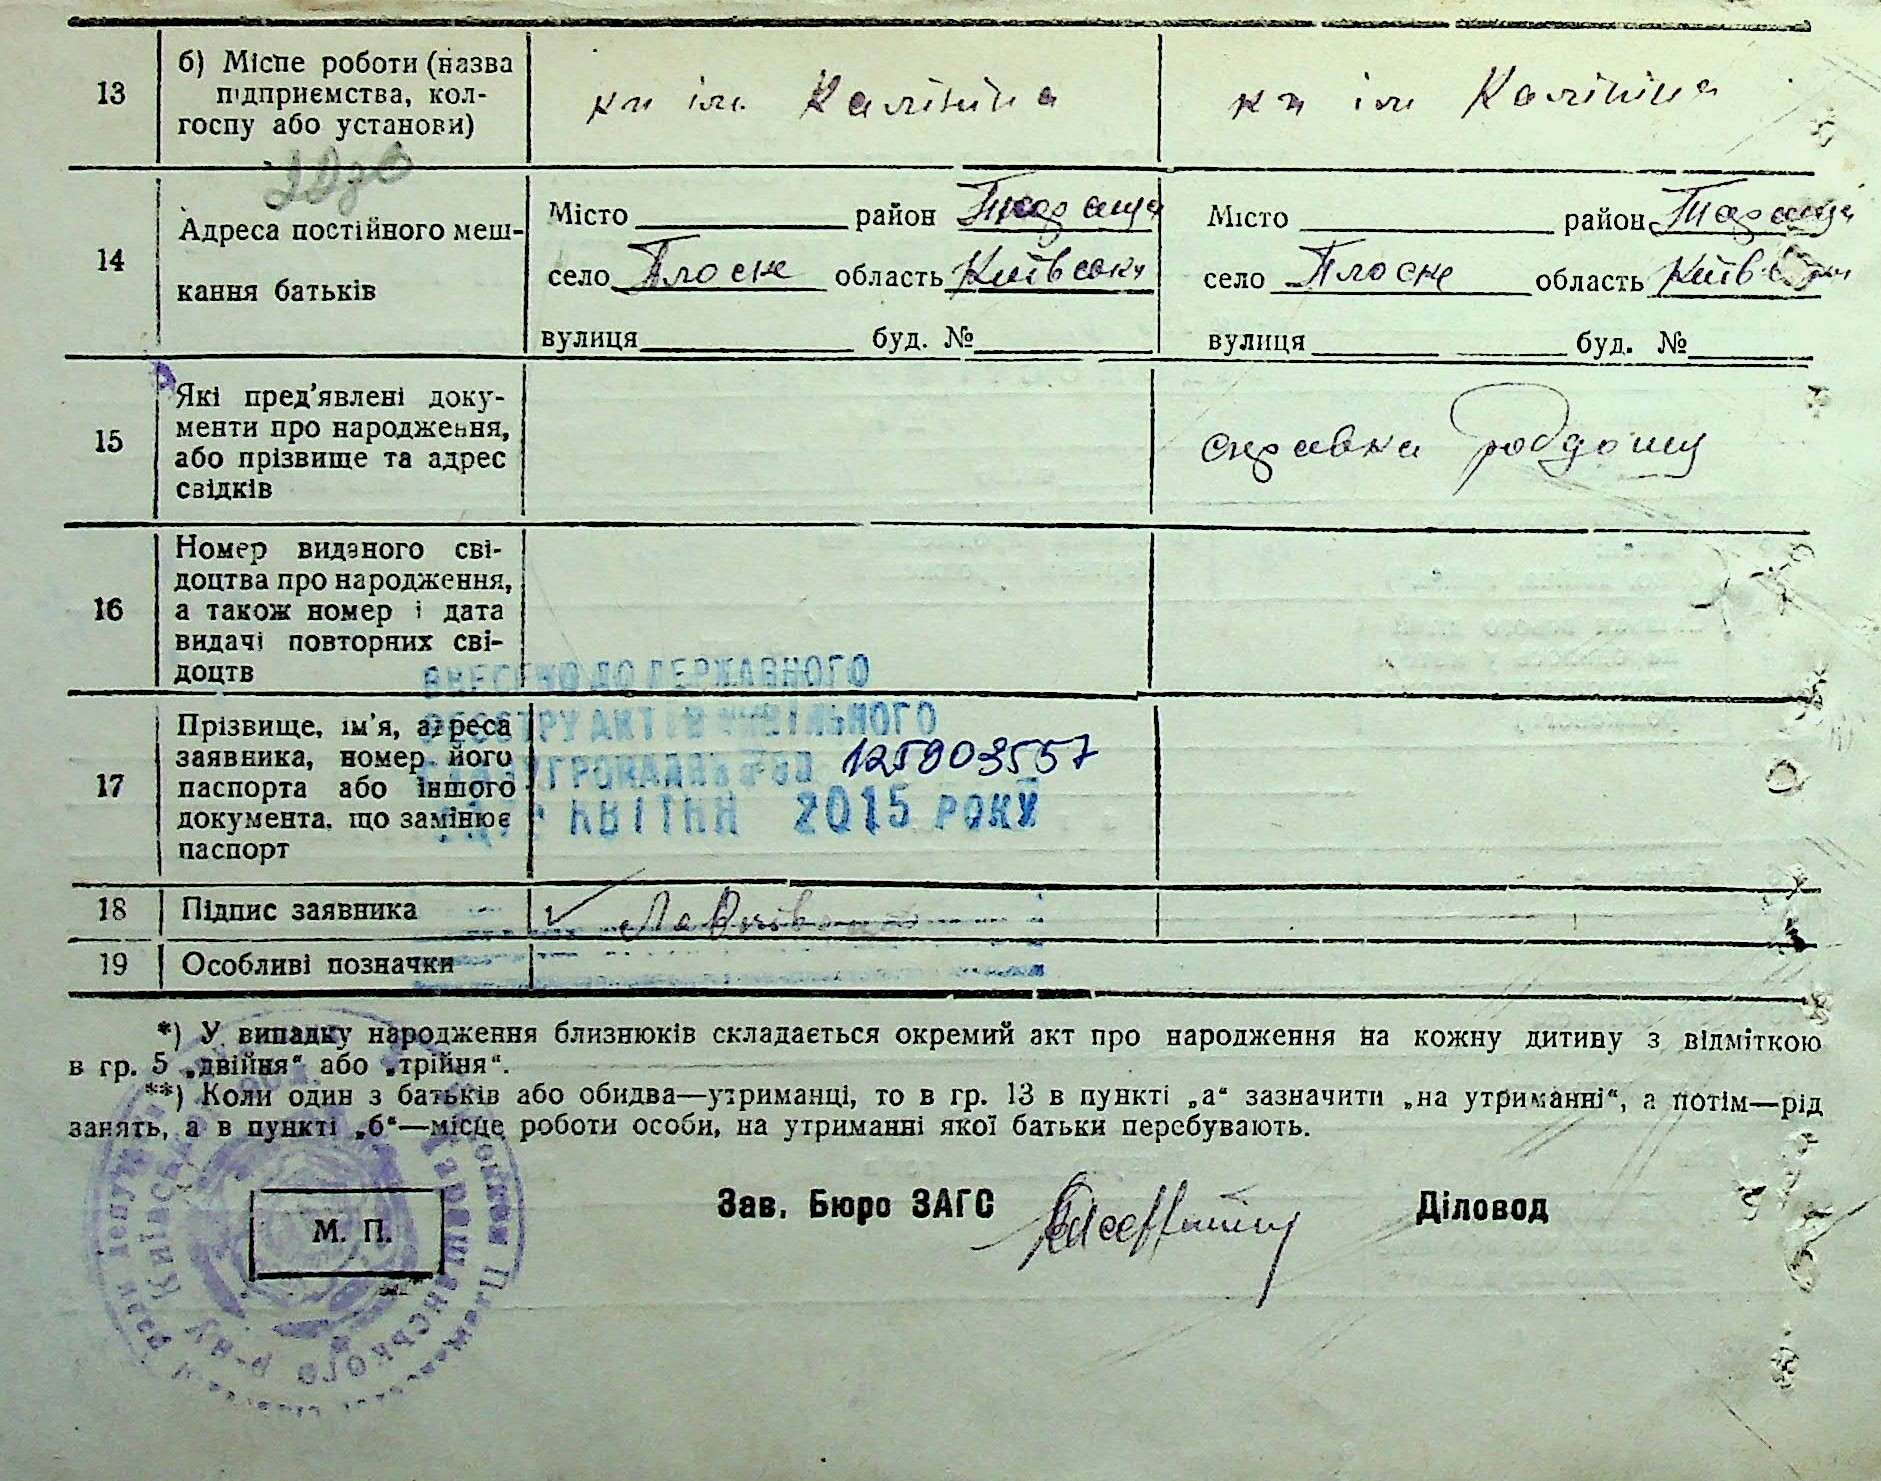 13
б) Місце роботи (назва
підприємства, кол-
госпу або установи)
кп ім Калініна
кп ім Калініна
14
Адреса постійного меш-
кання батьків
Місто район Тараща
село Плоске область Київськ
вулиця буд. №
Місто район Тараща
село Плоске область Київськ
вулиця буд. №
15
Які пред'явлені доку-
менти про народження,
або прізвище та адрес
свідків
справка роддому
16
Номер виданого сві-
доцтва про народження,
а також номер і дата
видачі повторних сві-
доцтв
ВНЕСЕНО ДО ДЕРЖАВНОГО
РЕЄСТРУ АКТІВ ЦИВІЛЬНОГО
СТАНУ ГРОМАДЯН 125903557
КВІТНЯ 2015 РОКУ
17
Прізвище, ім'я, адреса
заявника, номер його
паспорта або іншого
документа, що замінює
паспорт
18
Підпис заявника
19
Особливі позначки
*) У випадку народження близнюків складається окремий акт про народження на кожну дитину з відміткою
в гр. 5 „двійня“ або „трійня“.
**) Коли один з батьків або обидва—утриманці, то в гр. 13 в пункті „а“ зазначити „на утриманні“, а потім—рід
занять, а в пункті „б“—місце роботи особи, на утриманні якої батьки перебувають.
М. П.
Зав. Бюро ЗАГС
Діловод